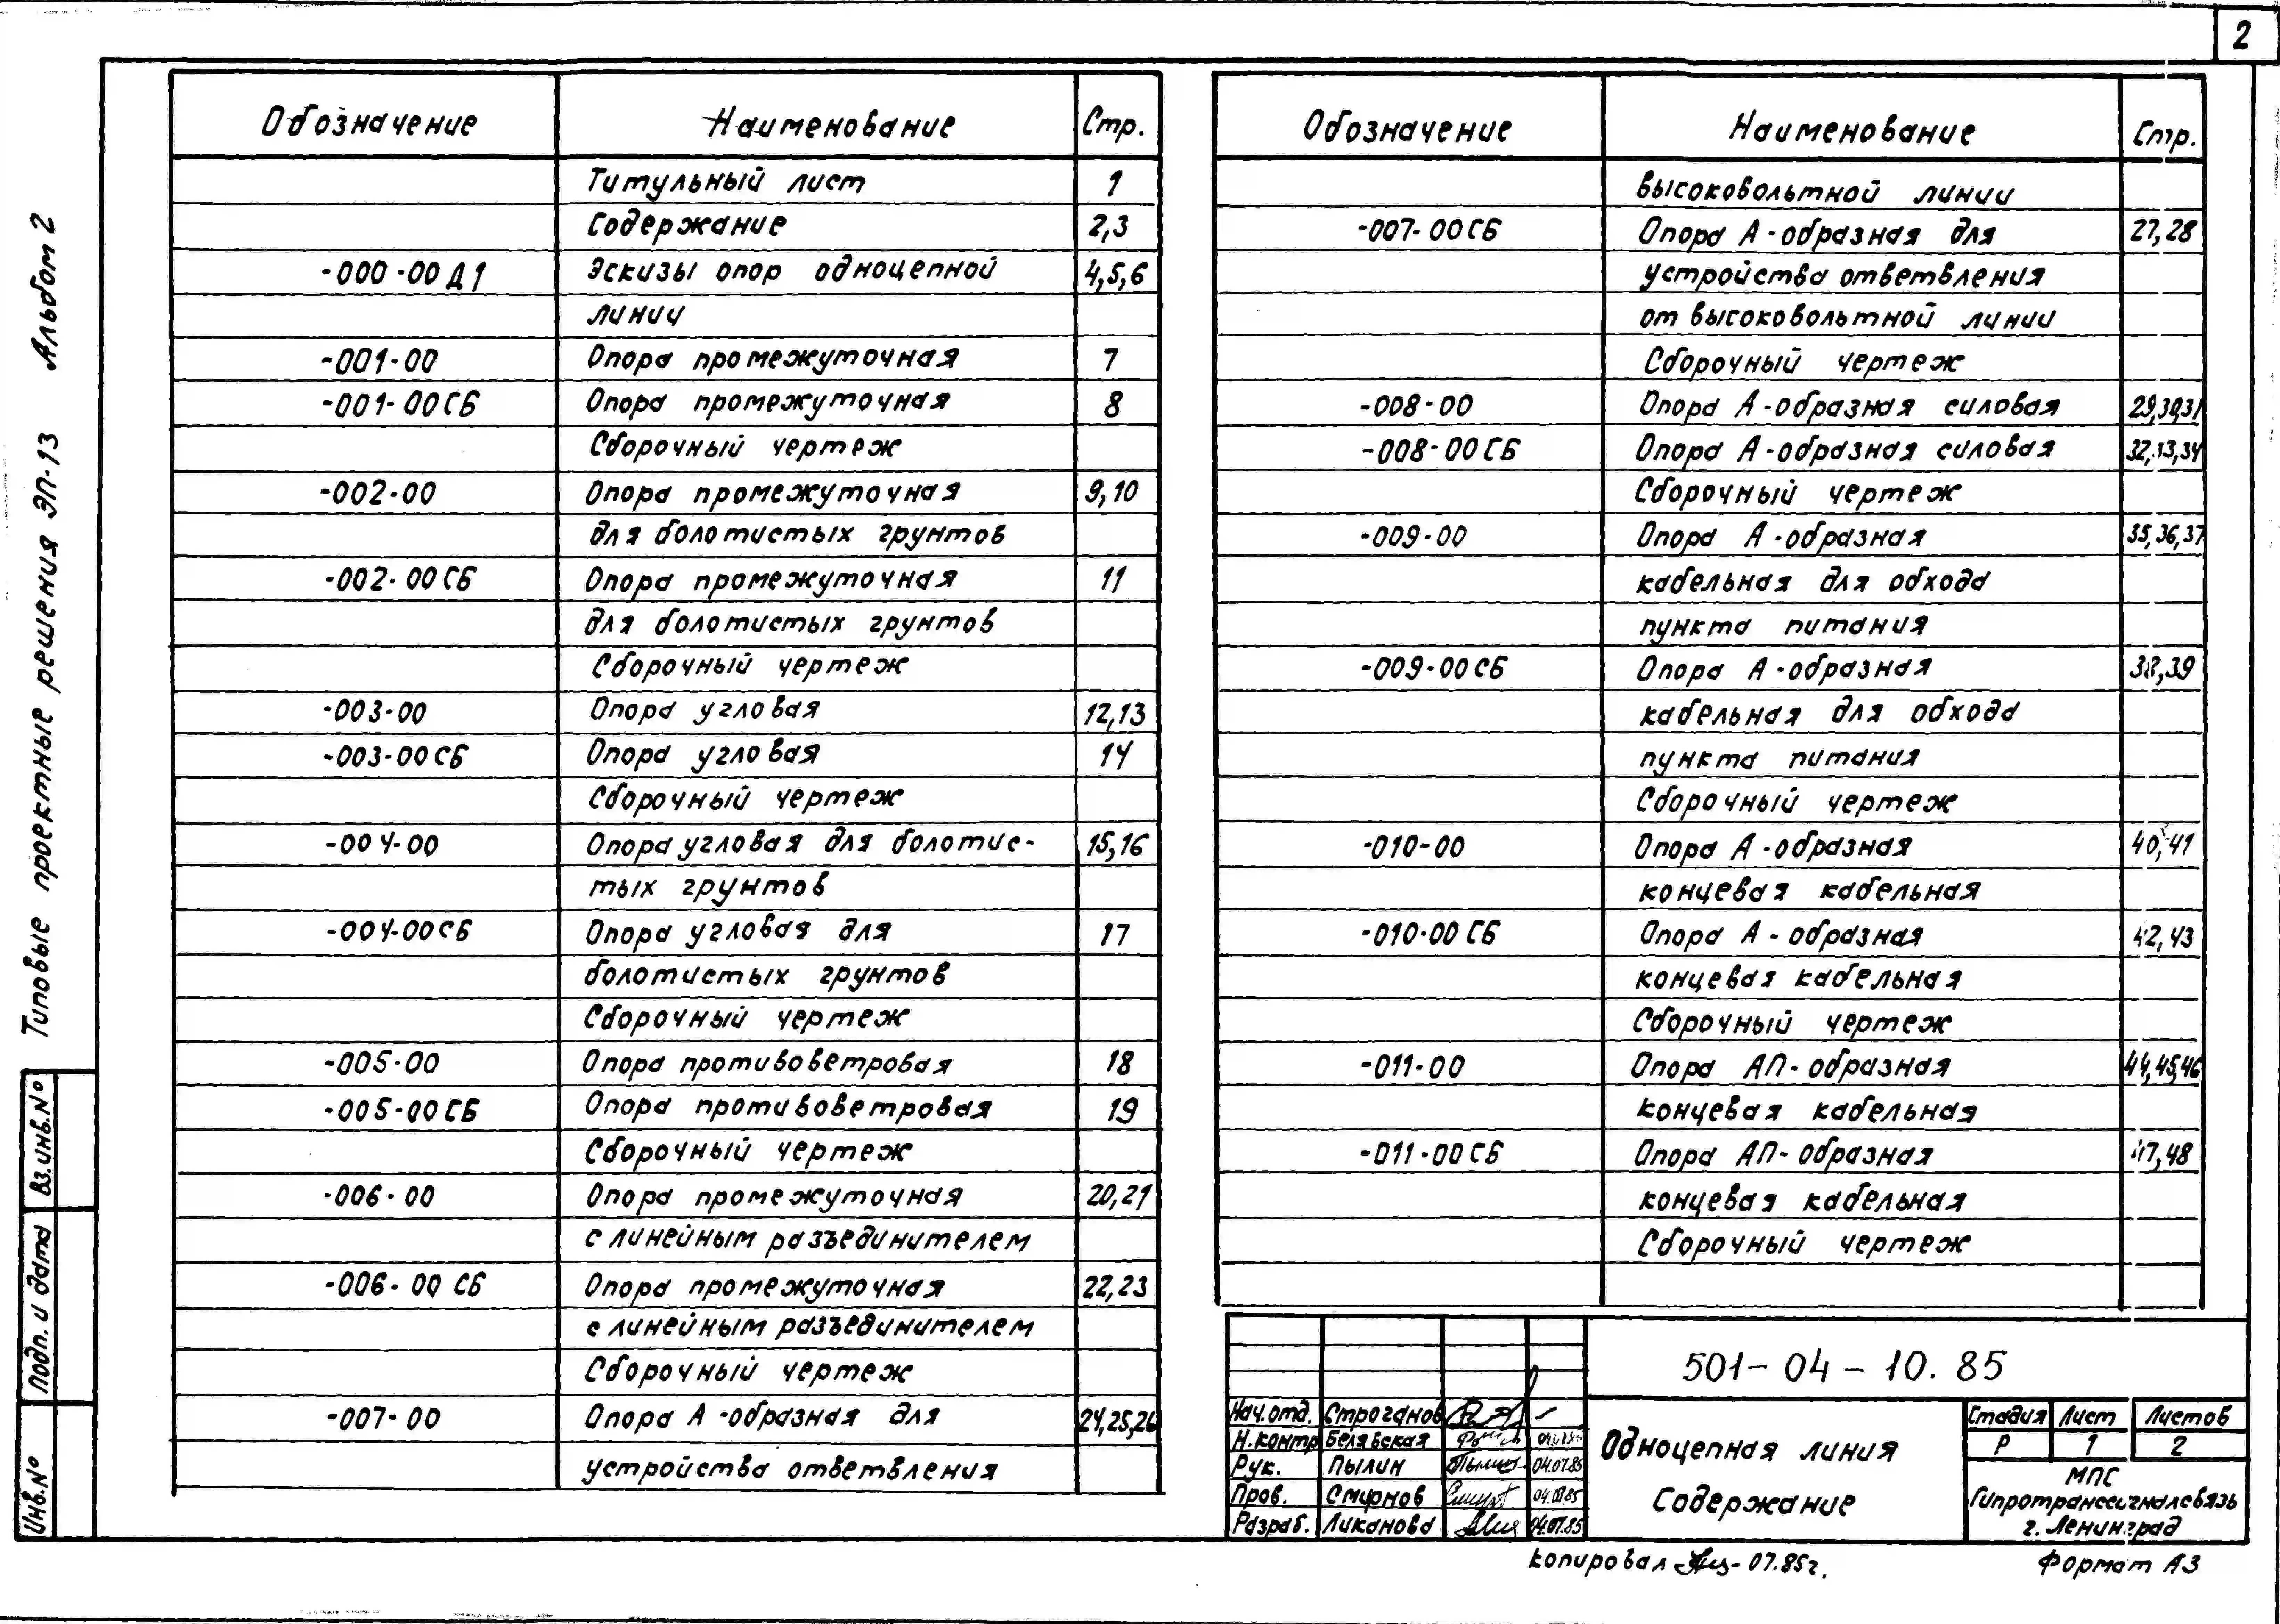 2
Обозначение Наименование Стр.
Титульный лист 1
Содержание 2,3
-000-00 Д1 Эскизы опор одноцепной 4,5,6
линии
-001-00 Опора промежуточная 7
-001-00СБ Опора промежуточная 8
Сборочный чертеж
-002-00 Опора промежуточная 9,10
для болотистых грунтов
-002-00СБ Опора промежуточная 11
для болотистых грунтов
Сборочный чертеж
-003-00 Опора угловая 12,13
-003-00СБ Опора угловая 14
Сборочный чертеж
-004-00 Опора угловая для болотис- 15,16
тых грунтов
-004-00СБ Опора угловая для 17
болотистых грунтов
Сборочный чертеж
-005-00 Опора противоветровая 18
-005-00СБ Опора противоветровая 19
Сборочный чертеж
-006-00 Опора промежуточная 20,21
с линейным разъединителем
-006-00 СБ Опора промежуточная 22,23
с линейным разъединителем
Сборочный чертеж
-007-00 Опора А-образная для 24,25,26
устройства ответвления
Обозначение Наименование Стр.
высоковольтной линии
-007-00СБ Опора А-образная для 27,28
устройства ответвления
от высоковольтной линии
Сборочный чертеж
-008-00 Опора А-образная силовая 29,30,31
-008-00СБ Опора А-образная силовая 32,33,34
Сборочный чертеж
-009-00 Опора А-образная 35,36,37
кабельная для обхода
пункта питания
-009-00СБ Опора А-образная 38,39
кабельная для обхода
пункта питания
Сборочный чертеж
-010-00 Опора А-образная 40,41
концевая кабельная
-010-00СБ Опора А-образная 42,43
концевая кабельная
Сборочный чертеж
-011-00 Опора АП-образная 44,45,46
концевая кабельная
-011-00СБ Опора АП-образная 47,48
концевая кабельная
Сборочный чертеж
501-04-10.85
Нач.отд. Строганов
Н.контр Белявская
Рук. Пылин 04.07.85
Пров. Смирнов 04.07.85
Разраб. Ликанова 04.07.85
Одноцепная линия
Содержание
Стадия Лист Листов
Р 1 2
МПС
Гипротранссигналсвязь
г. Ленинград
Копировал 07.85г.
Формат А3
Типовые проектные решения ЭП-13 Альбом 2
Вз.инв.№
Подп. и дата
Инв.№